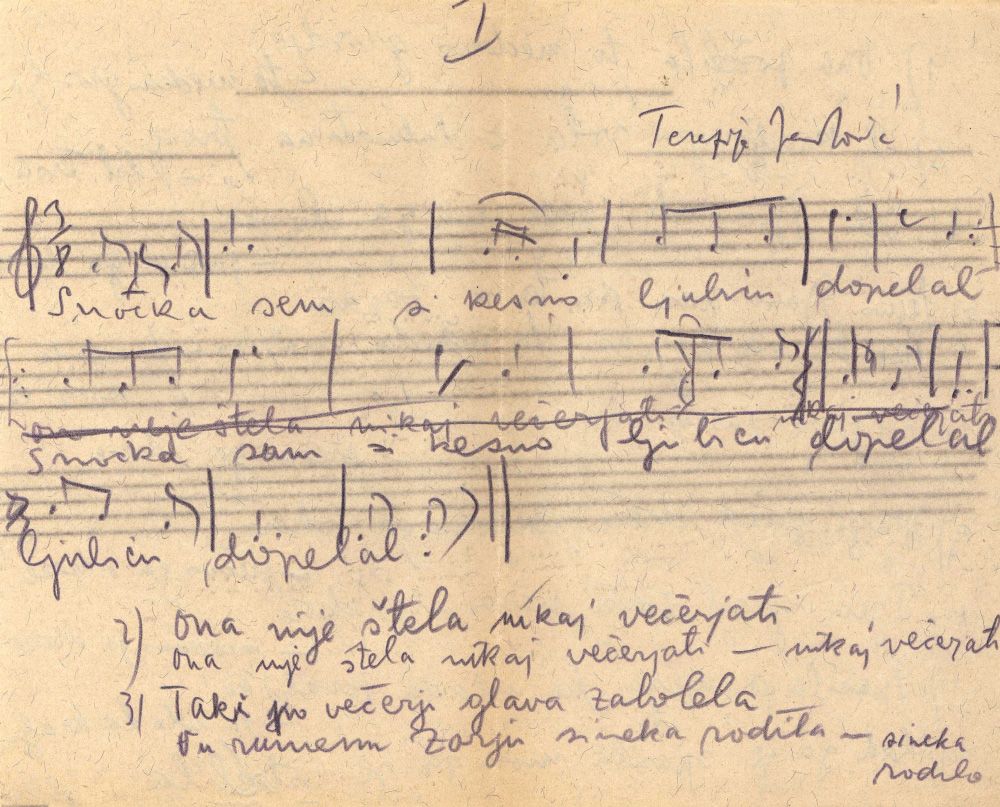 I
Terezija
3/8
Snočka sem si kesno ljubicu dopelal
ona nije štela nikaj večerjati nikaj večerjati
Snočka sam si kesno ljubicu dopelal
ljubicu dopelal
2) ona nije štela nikaj večerjati
ona nije štela nikaj večerjati – nikaj večerjati
3) Taki po večerji glava zabolela
Vu rumenu zorju sineka rodila – sineka
rodilo